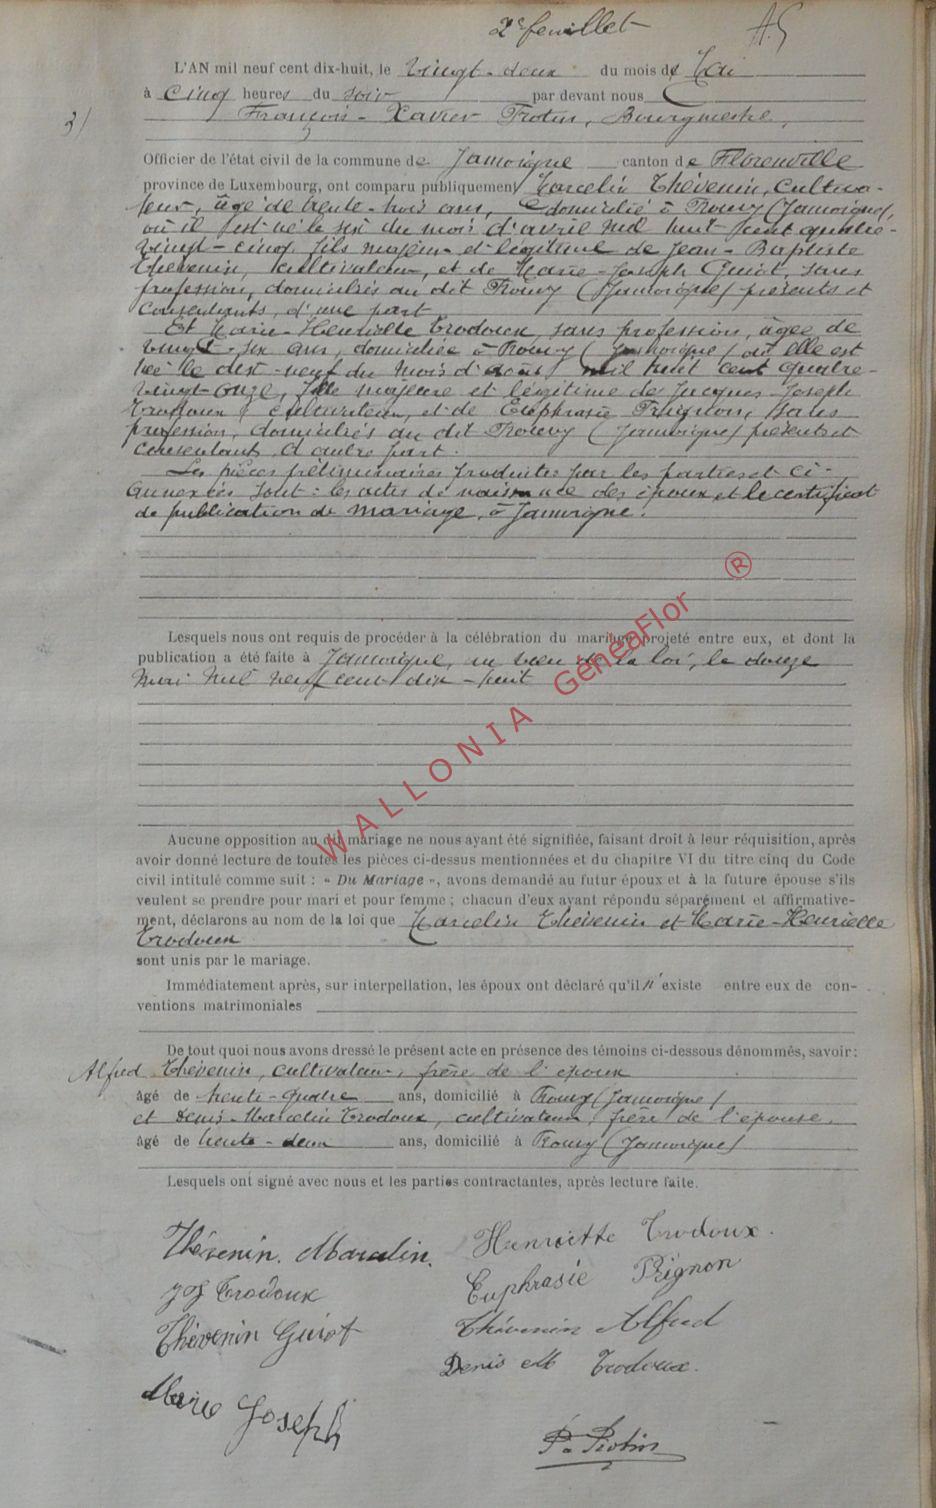 2e feuillet
A.G
L'AN mil neuf cent dix-huit, le vingt-deux du mois de Mai
à cinq heures du soir par devant nous
3/
François-Xavier Protin, Bourgmestre,
Officier de l'état civil de la commune de Jamoigne canton de Florenville
province de Luxembourg, ont comparu publiquement Marcelin Thévenin, cultiva-
teur, âgé de trente-trois ans, domicilié à Prouvy (Jamoigne),
où il est né le six du mois d'avril mil huit cent quatre-
vingt-cinq, fils majeur et légitime de Jean-Baptiste
Thévenin, cultivateur, et de Marie-Joseph Guiot, sans
profession, domiciliés au dit Prouvy (Jamoigne) présents et
consentants, d'une part
Et Marie-Henriette Trodoux, sans profession, âgée de
vingt-six ans, domiciliée à Prouvy (Jamoigne) où elle est
née le dix-neuf du mois d'août mil huit cent quatre-
vingt-onze, fille majeure et légitime de Jacques-Joseph
Trodoux, cultivateur, et de Euphrasie Prignon, sans
profession, domiciliés au dit Prouvy (Jamoigne) présents et
consentants, d'autre part.
Les pièces préliminaires produites par les parties et ci-
annexées sont: les actes de naissance des époux et le certificat
de publication de mariage, à Jamoigne.
Lesquels nous ont requis de procéder à la célébration du mariage projeté entre eux, et dont la
publication a été faite à Jamoigne, au vœu de la loi, le douze
mai mil neuf cent dix-huit
WALLONIA GénéaFlor ®
Aucune opposition au dit mariage ne nous ayant été signifiée, faisant droit à leur réquisition, après
avoir donné lecture de toutes les pièces ci-dessus mentionnées et du chapitre VI du titre cinq du Code
civil intitulé comme suit : « Du Mariage », avons demandé au futur époux et à la future épouse s'ils
veulent se prendre pour mari et pour femme ; chacun d'eux ayant répondu séparément et affirmative-
ment, déclarons au nom de la loi que Marcelin Thévenin et Marie-Henriette
Trodoux
sont unis par le mariage.
Immédiatement après, sur interpellation, les époux ont déclaré qu'il n'existe entre eux de con-
ventions matrimoniales
De tout quoi nous avons dressé le présent acte en présence des témoins ci-dessous dénommés, savoir :
Alfred Thévenin, cultivateur, frère de l'époux
âgé de trente-quatre ans, domicilié à Prouvy (Jamoigne)
et Denis-Marcelin Trodoux, cultivateur, frère de l'épouse,
âgé de trente-deux ans, domicilié à Prouvy (Jamoigne)
Lesquels ont signé avec nous et les parties contractantes, après lecture faite.
Thévenin Marcelin. Henriette Trodoux.
JJ Trodoux Euphrasie Prignon
Thévenin Guiot Thévenin Alfred
Denis M Trodoux.
Marie Joseph